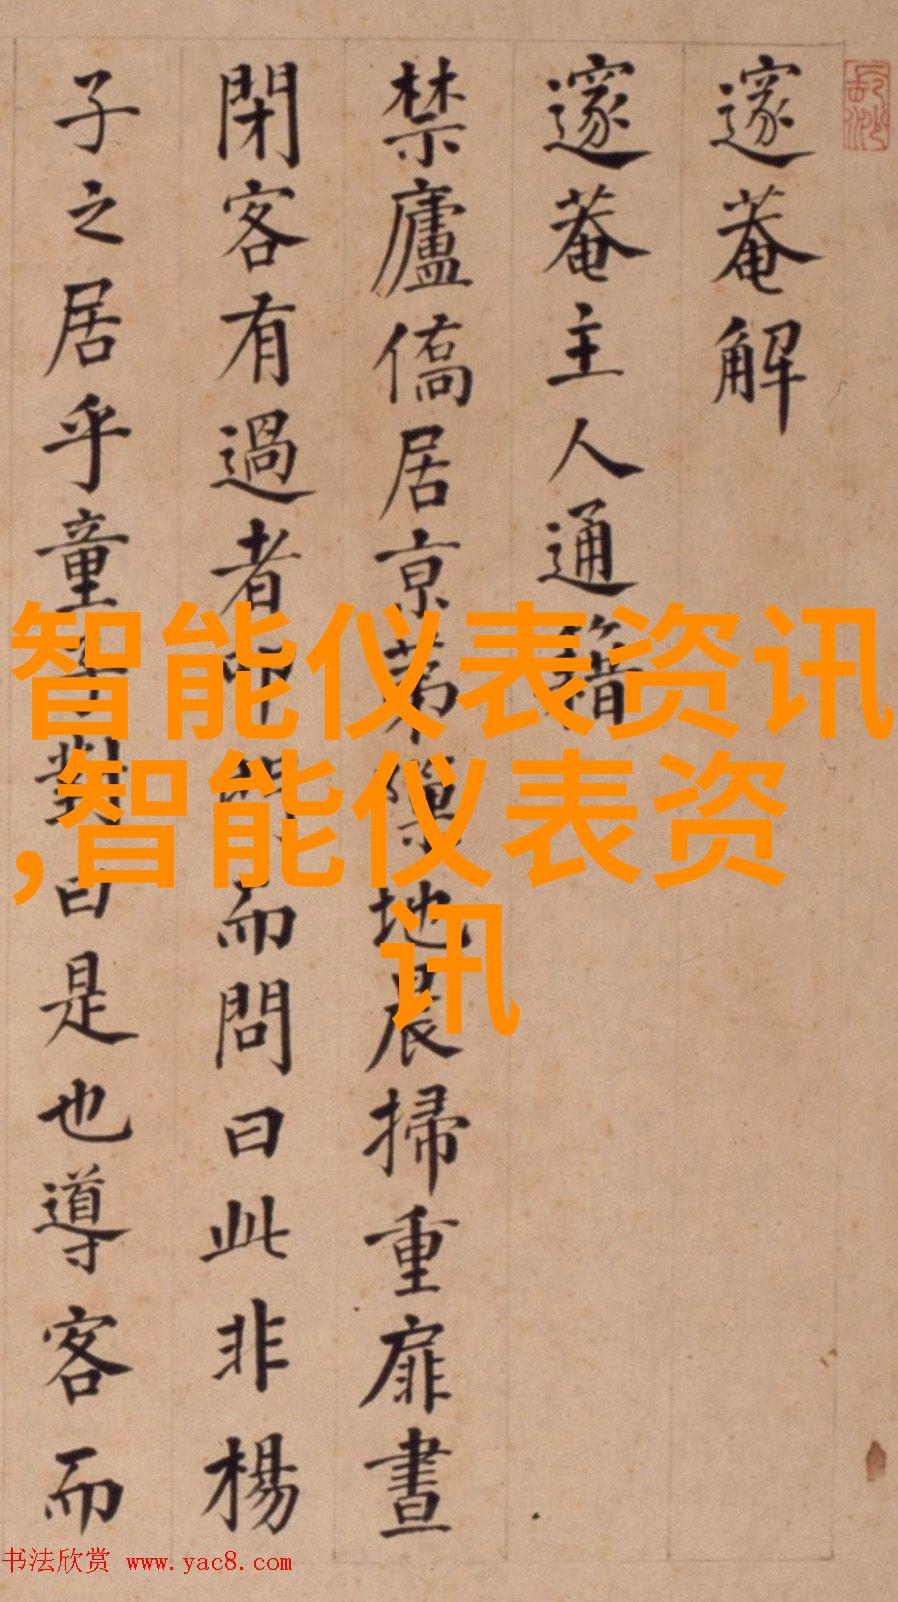 邃菴解
邃菴主人通籍
禁廬僑居京第隙地晨掃重扉晝
閉客有過者叩門而問曰此非楊
子之居乎童子對曰是也導客而
智能仪表资讯
,智能仪表资
讯
书法欣赏 www.yac8.com